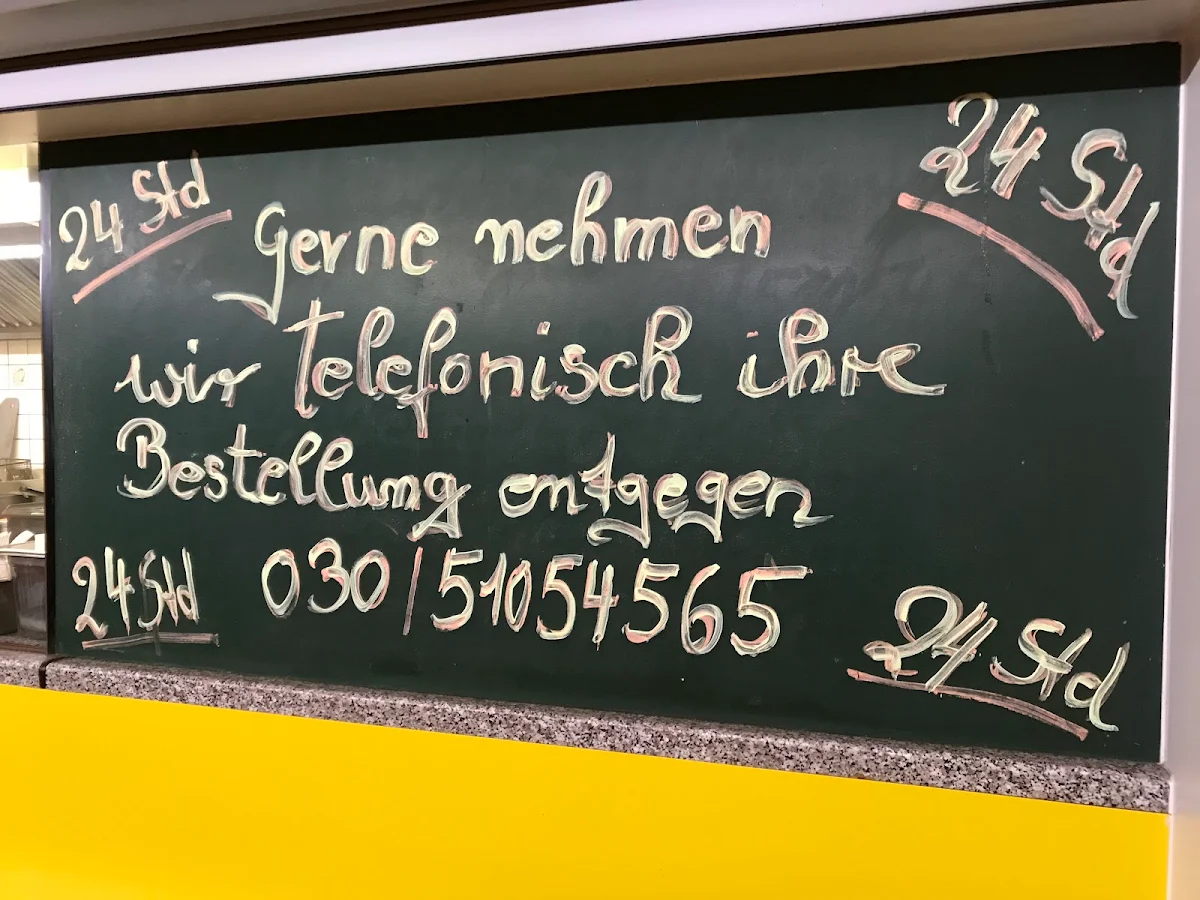 24 Std
24 Std
Gerne nehmen
wir telefonisch ihre
Bestellung entgegen
24 Std
030/51054565
24 Std